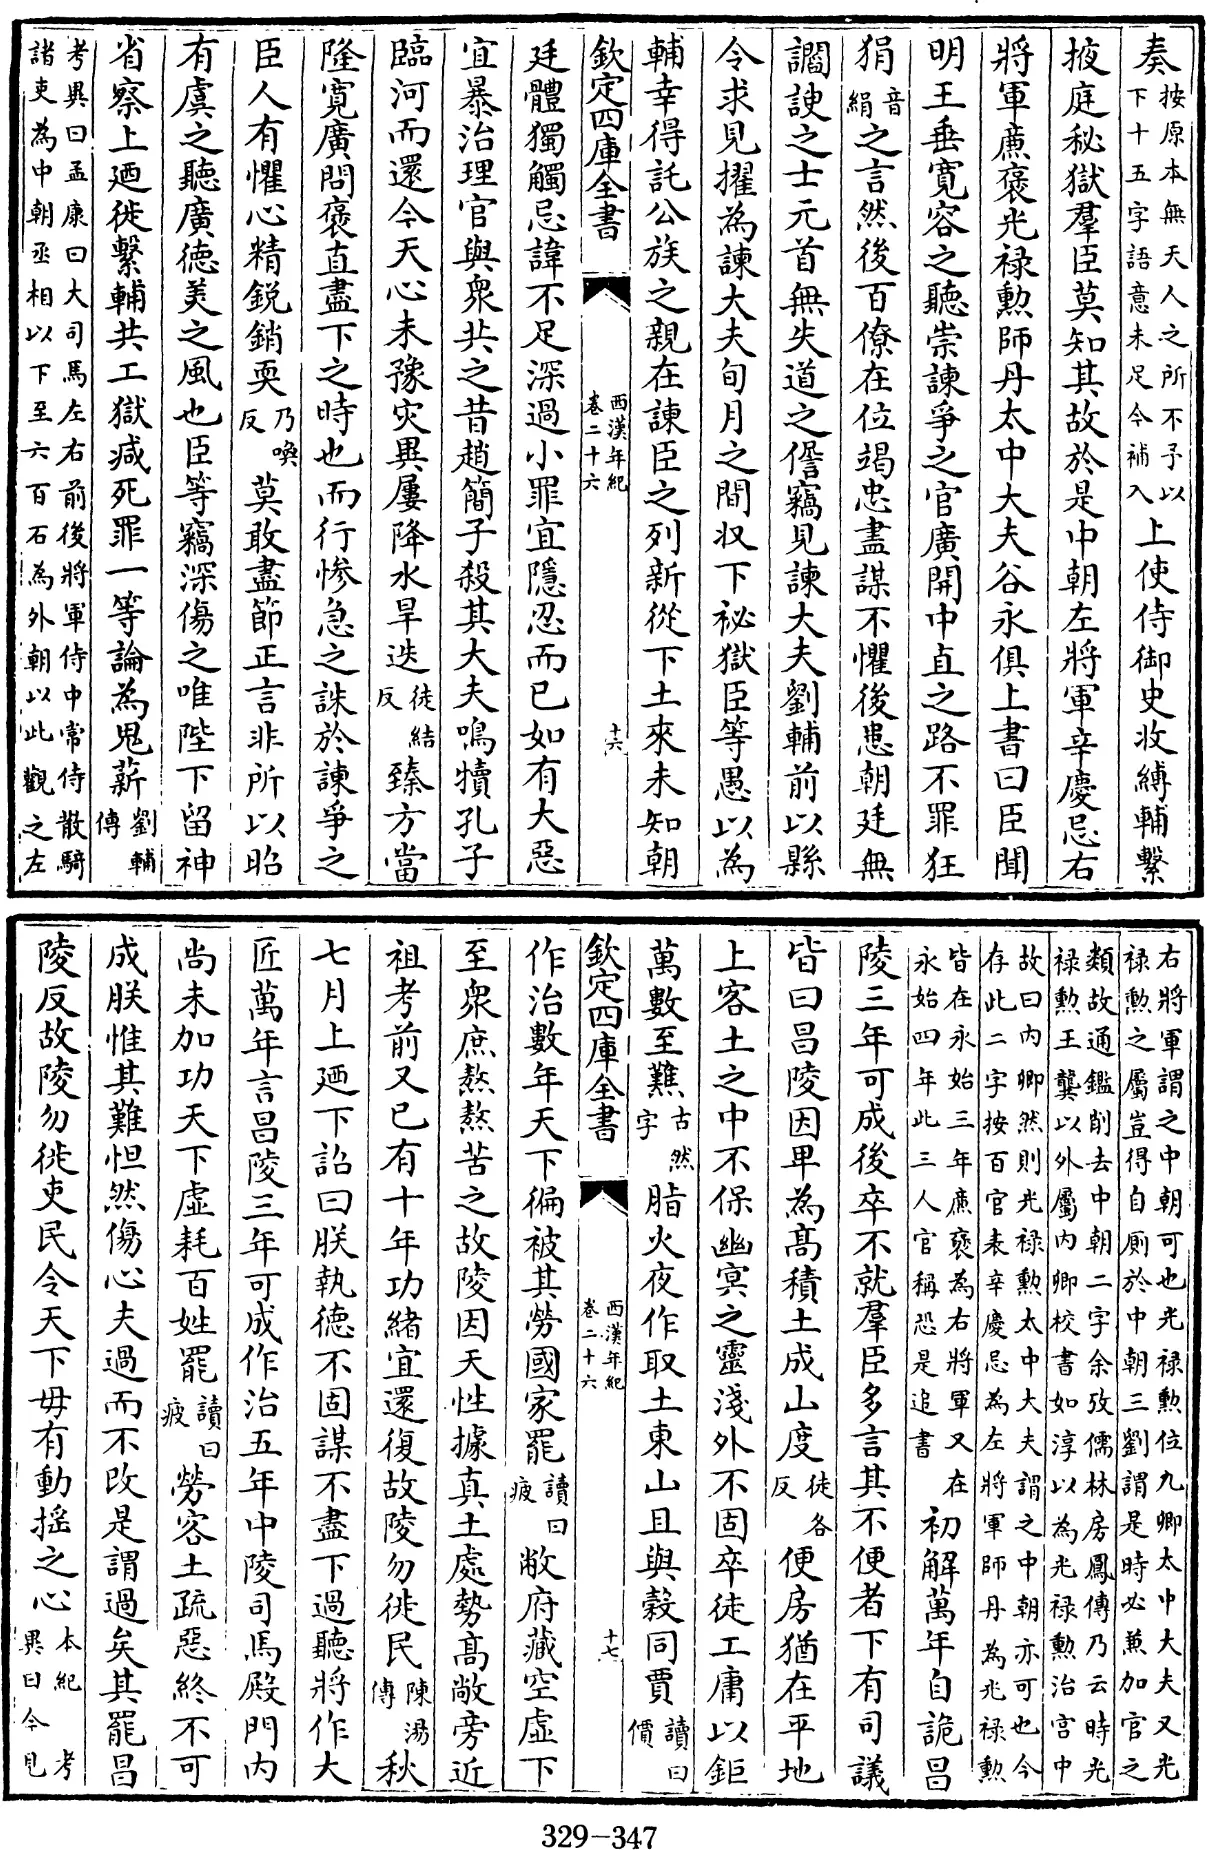 奏按原本無天人之所不予以下十五字語意未足今補入上使侍御史收縛輔繫
掖庭秘獄羣臣莫知其故於是中朝左將軍辛慶忌右
將軍廉褒光禄勲師丹太中大夫谷永俱上書曰臣聞
明王垂寛容之聽崇諫爭之官廣開中直之路不罪狂
狷音絹之言然後百僚在位竭忠盡謀不懼後患朝廷無
讇諛之士元首無失道之諐竊見諫大夫劉輔前以縣
令求見擢為諫大夫旬月之間収下祕獄臣等愚以為
輔幸得託公族之親在諫臣之列新從下土來未知朝
欽定四庫全書
西漢年紀
卷二十六
十六
廷體獨觸忌諱不足深過小罪宜隱忍而已如有大惡
宜暴治理官與衆共之昔趙簡子殺其大夫鳴犢孔子
臨河而還今天心未豫灾異屢降水旱迭徒結反臻方當
隆寛廣問褒直盡下之時也而行慘急之誅於諫爭之
臣人有懼心精鋭銷耎乃喚反莫敢盡節正言非所以昭
有虞之聽廣德美之風也臣等竊深傷之唯陛下留神
省察上廼徙繫輔共工獄减死罪一等論為鬼薪劉輔傳
考異曰孟康曰大司馬左右前後將軍侍中常侍散騎
諸吏為中朝丞相以下至六百石為外朝以此觀之左
右將軍謂之中朝可也光禄勲位九卿太中大夫又光
禄勲之屬豈得自厠於中朝三劉謂是時必兼加官之
類故通鑑削去中朝二字余攷儒林房鳳傳乃云時光
禄勲王龔以外屬内卿校書如淳以為光禄勲治宫中
故曰内卿然則光禄勲太中大夫謂之中朝亦可也今
存此二字按百官表辛慶忌為左將軍師丹為光禄勲
皆在永始三年廉褒為右將軍又在
永始四年此三人官稱恐是追書初解萬年自詭昌
陵三年可成後卒不就羣臣多言其不便者下有司議
皆曰昌陵因卑為髙積土成山度徒各反便房猶在平地
上客土之中不保幽冥之靈淺外不固卒徒工庸以鉅
萬數至難古然字脂火夜作取土東山且與穀同賈讀曰價
欽定四庫全書
西漢年紀
卷二十六
十七
作治數年天下徧被其勞國家罷讀曰疲敝府藏空虚下
至衆庶熬熬苦之故陵因天性據真土處勢髙敞旁近
祖考前又已有十年功緒宜還復故陵勿徙民陳湯傳秋
七月上廼下詔曰朕執德不固謀不盡下過聽將作大
匠萬年言昌陵三年可成作治五年中陵司馬殿門内
尚未加功天下虚耗百姓罷讀曰疲勞客土疏惡終不可
成朕惟其難怛然傷心夫過而不改是謂過矣其罷昌
陵反故陵勿徙吏民令天下毋有動揺之心本紀考異曰今見
329-347